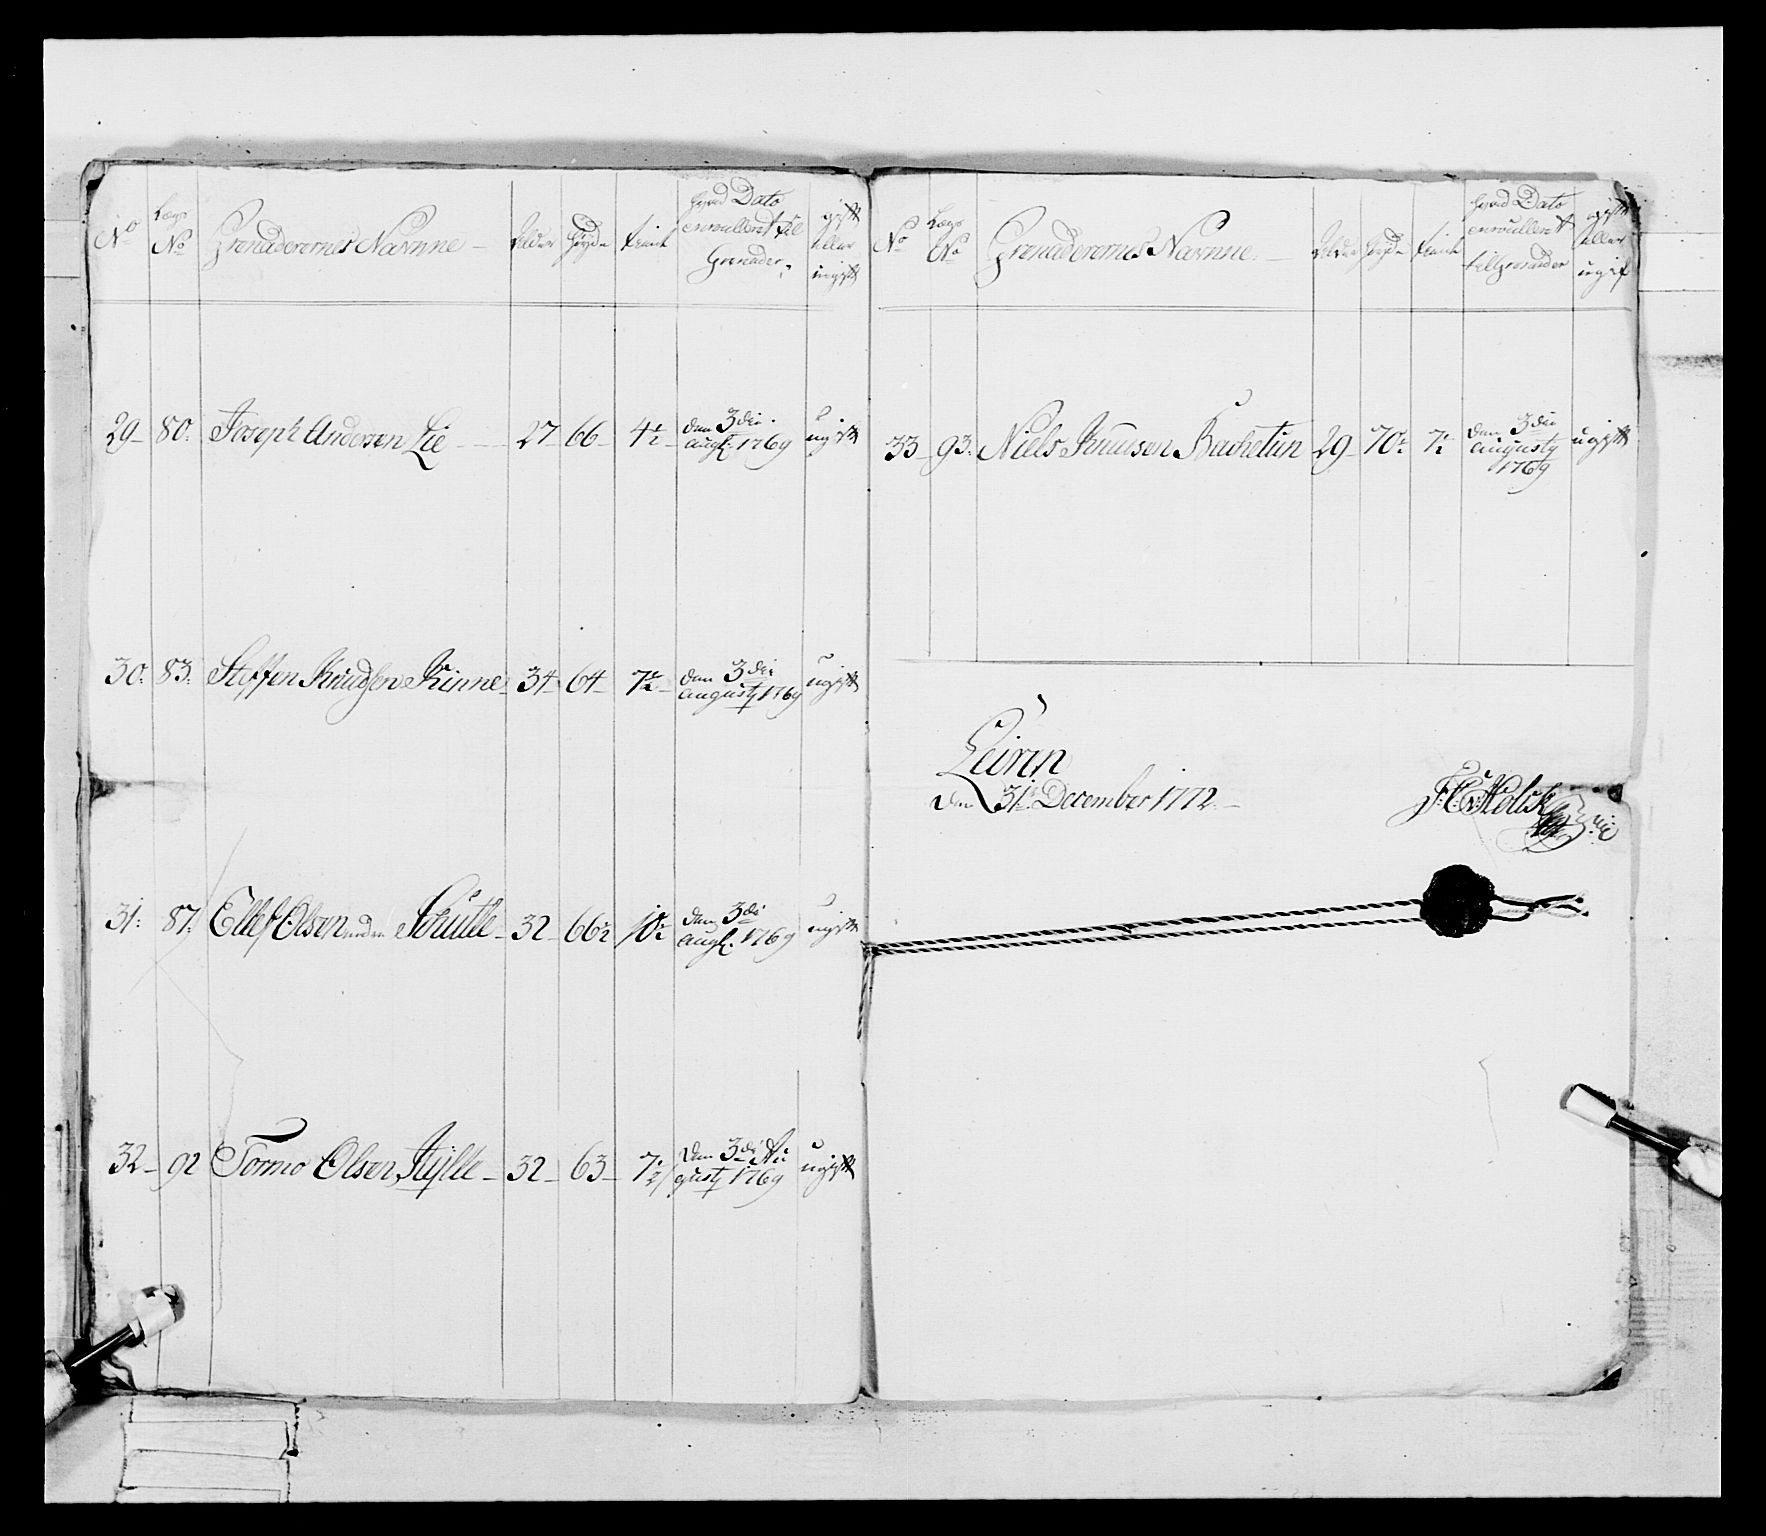 No Lægs No Grenaderernes Navnne Alder Høyde tiente hvad Dato enroulleret til Grenader gift eller ugift
29 80: Joseph Andersen Lie 27 66 4½ den 3die aug: 1769 ugift
30: 83: Steffen Knudsen Rinne 34 64 7½ den 3die augusty 1769 ugift
31: 87: Ellef Olsen Schutle 32 66½ 10½ den 3die aug: 1769 ugift
32 92 Tormo Olsen Hylle 32 63 7½ den 3die Au gusty 1769 ugift
No Lægs No Grenaderernes Navnne Alder Høyde tiente hvad Dato enroulleret til Grenader gift eller ugif
33 93: Niels Knudsen Bachetun 29 70½ 7½ den 3die augusty 1769 ugift
Leirin
den 31te December 1772